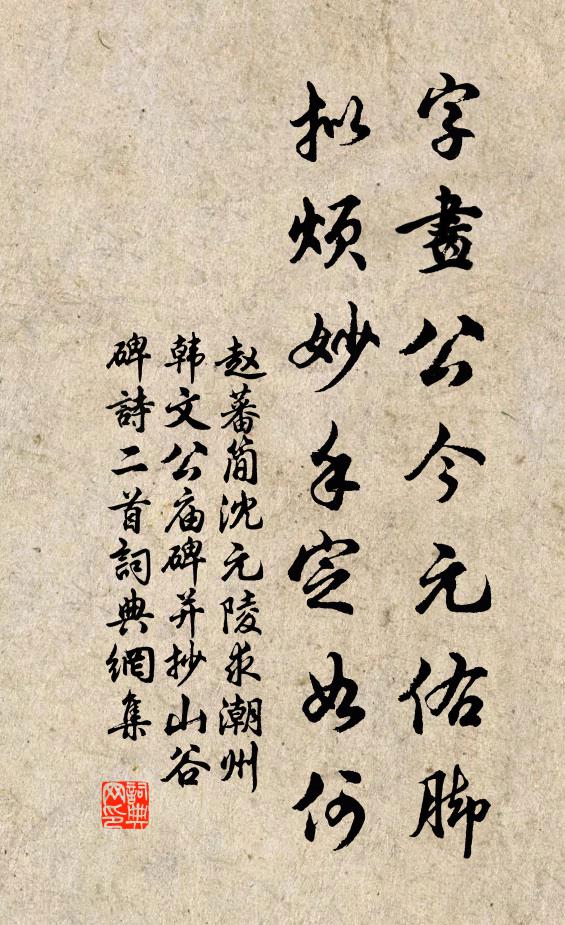 字畫公今元佑脚
拟烦妙手定如何
赵蕃简沈元陵求潮州
韩文公庙碑并抄山谷
碑詩二首詞典網集
詞典
网印